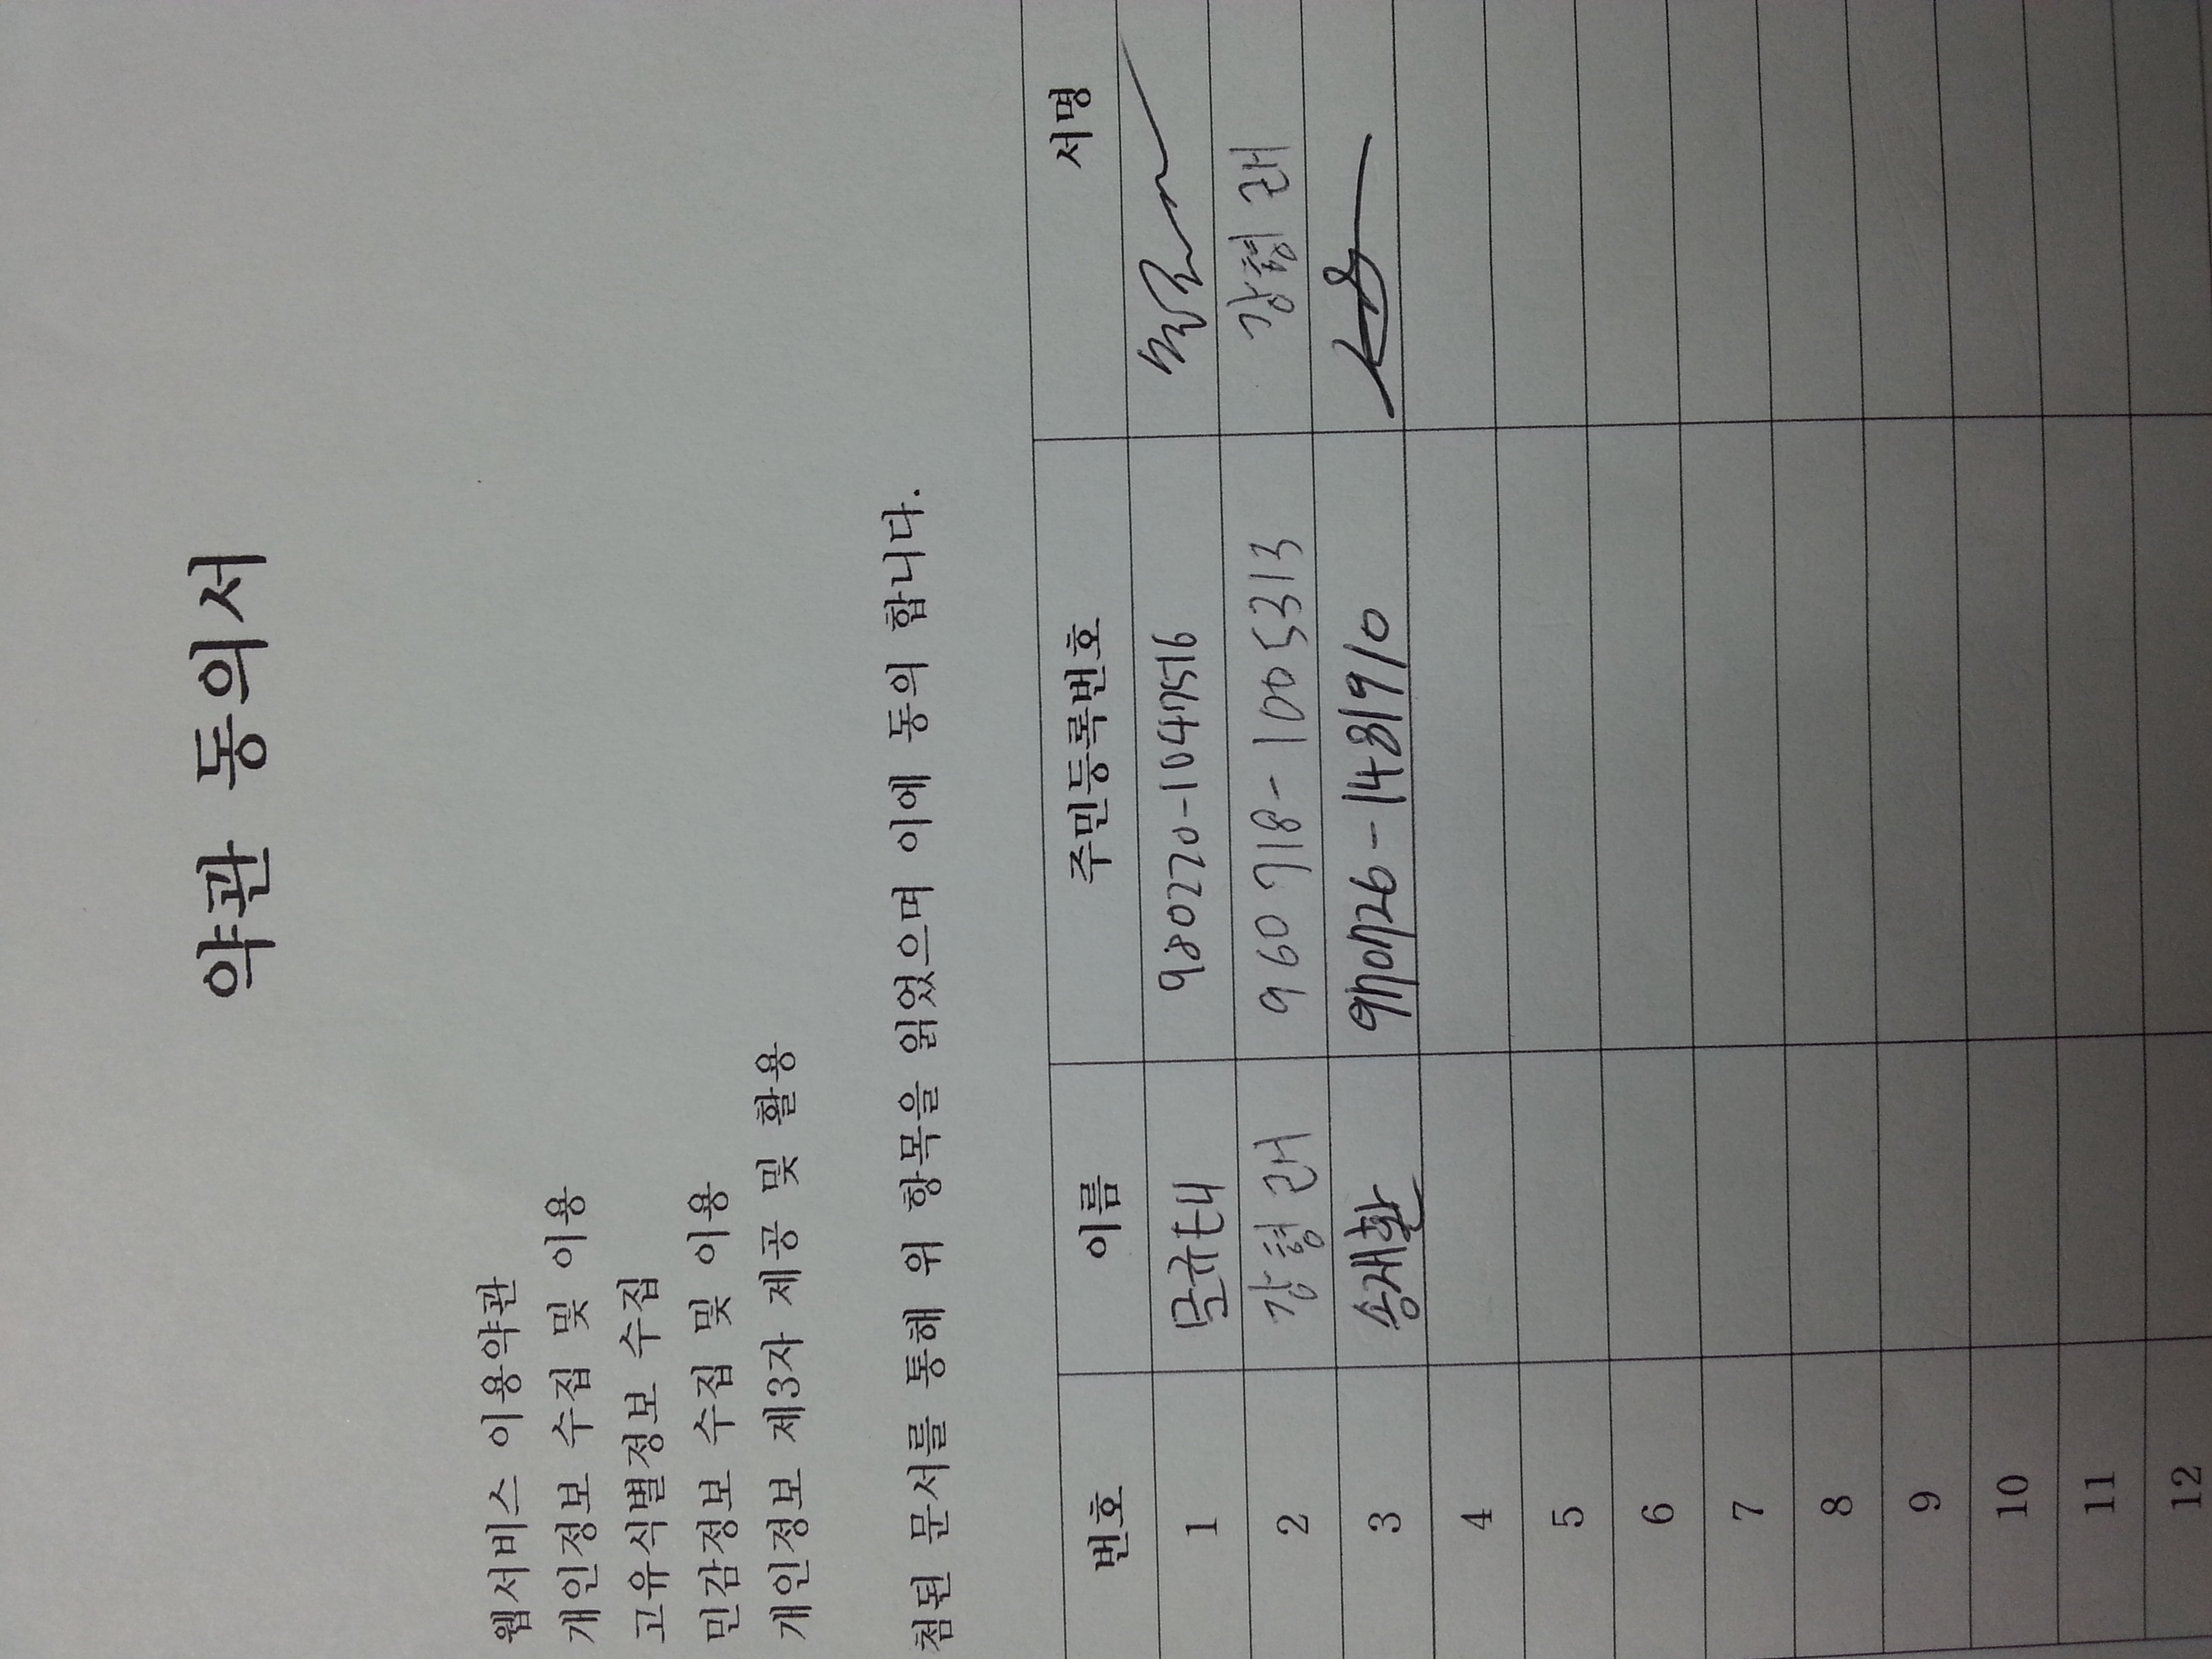 약관 동의서
웹서비스 이용약관
개인정보 수집 및 이용
고유식별정보 수집
민감정보 수집 및 이용
개인정보 제3자 제공 및 활용
첨된 문서를 통해 위 항목을 읽었으며 이에 동의 합니다.
번호 이름 주민등록번호 서명
1 목규태 980220-1047516
2 강형래 960718-1005313 강형래
3 송재환 970726-1481910
4
5
6
7
8
9
10
11
12